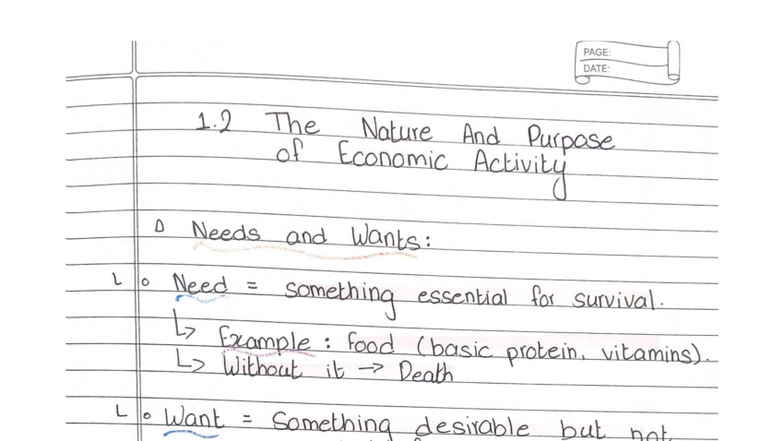 PAGE:
DATE:
1.2 The Nature And Purpose
of Economic Activity
D Needs and Wants:
L o Need = something essential for survival.
↳ Example: Food (basic protein, vitamins).
↳ Without it → Death
L o Want = Something desirable but not